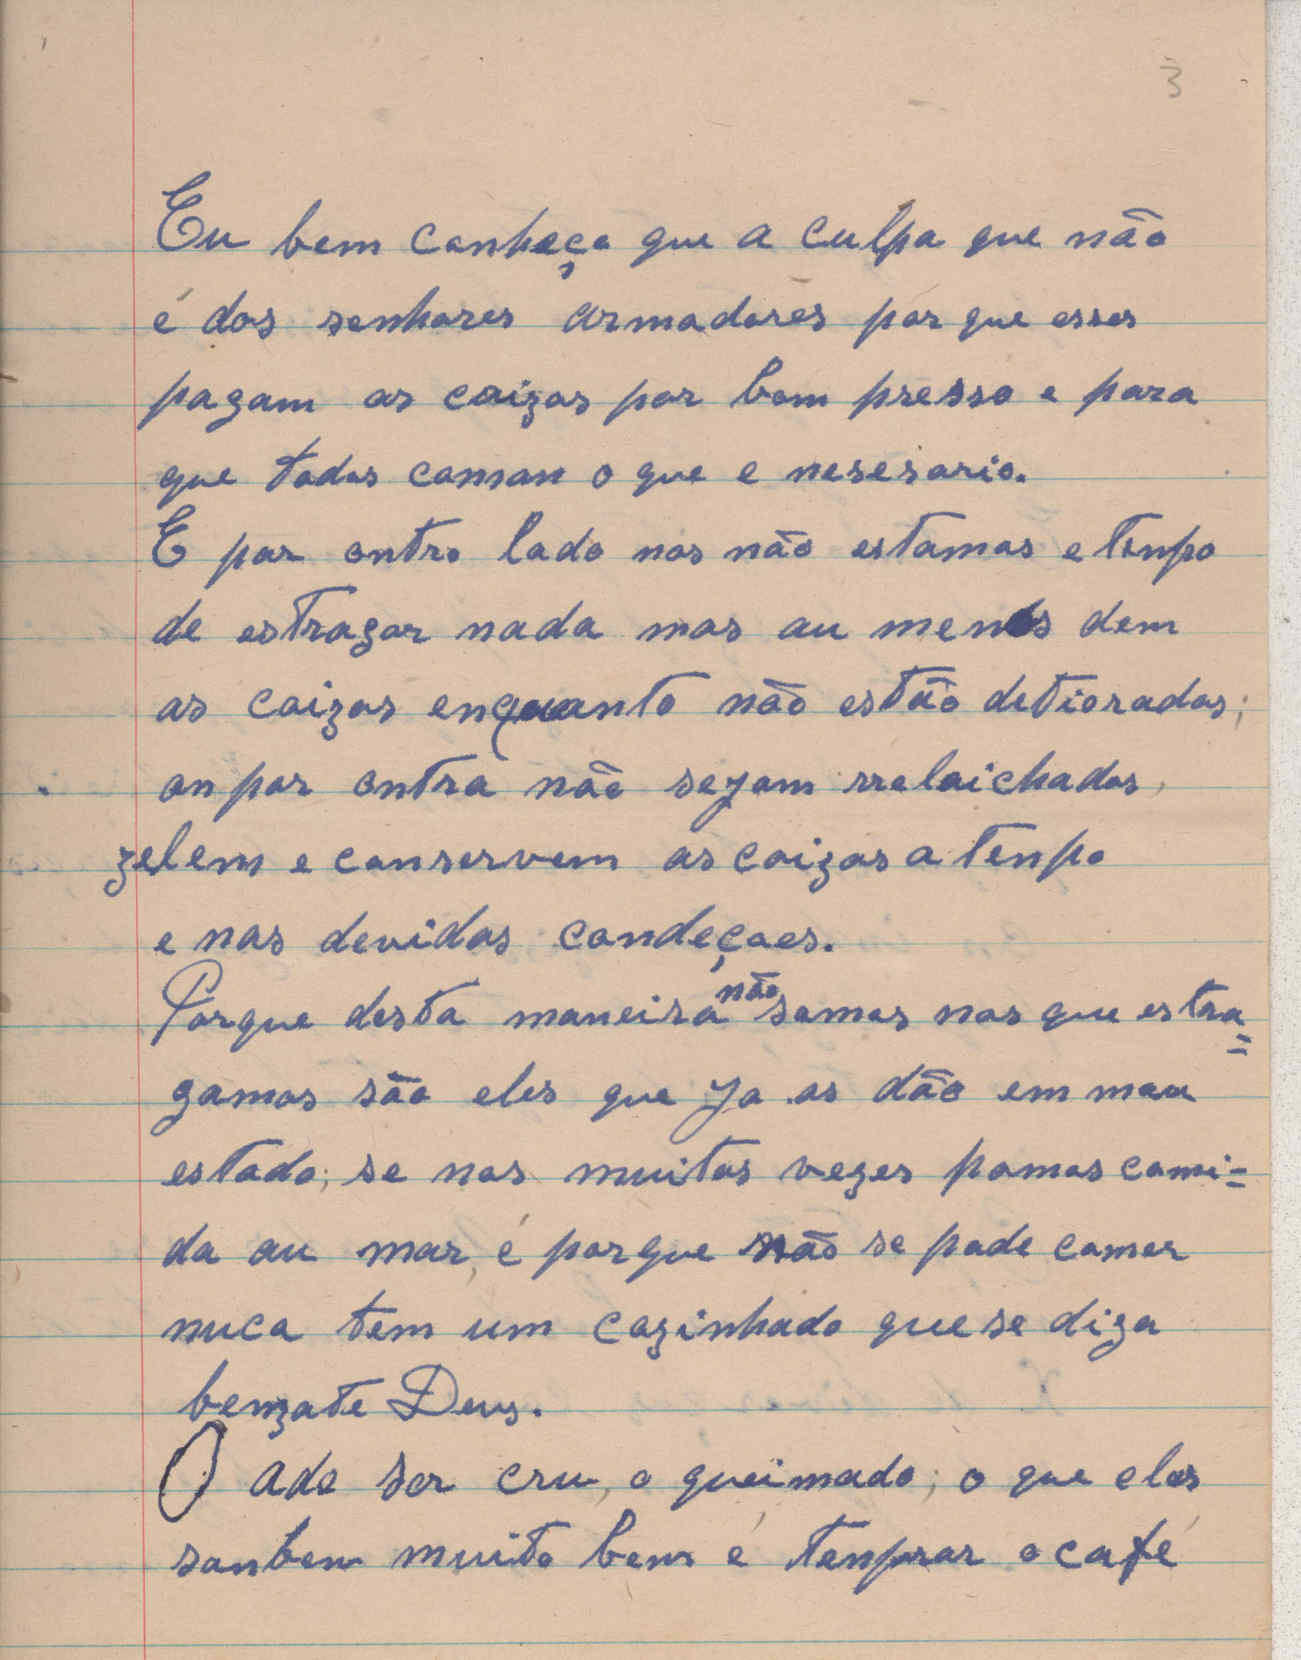 3
Eu bem conheço que a culpa que não
é dos senhores armadores por que esses
pagam as coizas por bom presso e para
que todos coman o que e nesesario.
E por outro lado nos não estamos e tenpo
de estragar nada mas au menos dem
as coizas enquanto não estão detioradas;
ou por outra não sejam rrelaichados,
zelem e conservem as coizas a tenpo
e nas devidas condeçoes.
Porque desta maneira não somos nos que estra=
gamos são eles que ja as dão em mau
estado; se nos muitas vezes pomos comi=
da au mar, é porque não se pode comer
nuca tem um cozinhado que se diga
benzate Deus.
O ade ser cru, o queimado; o que eles
sanben muito bem é tenprar o café